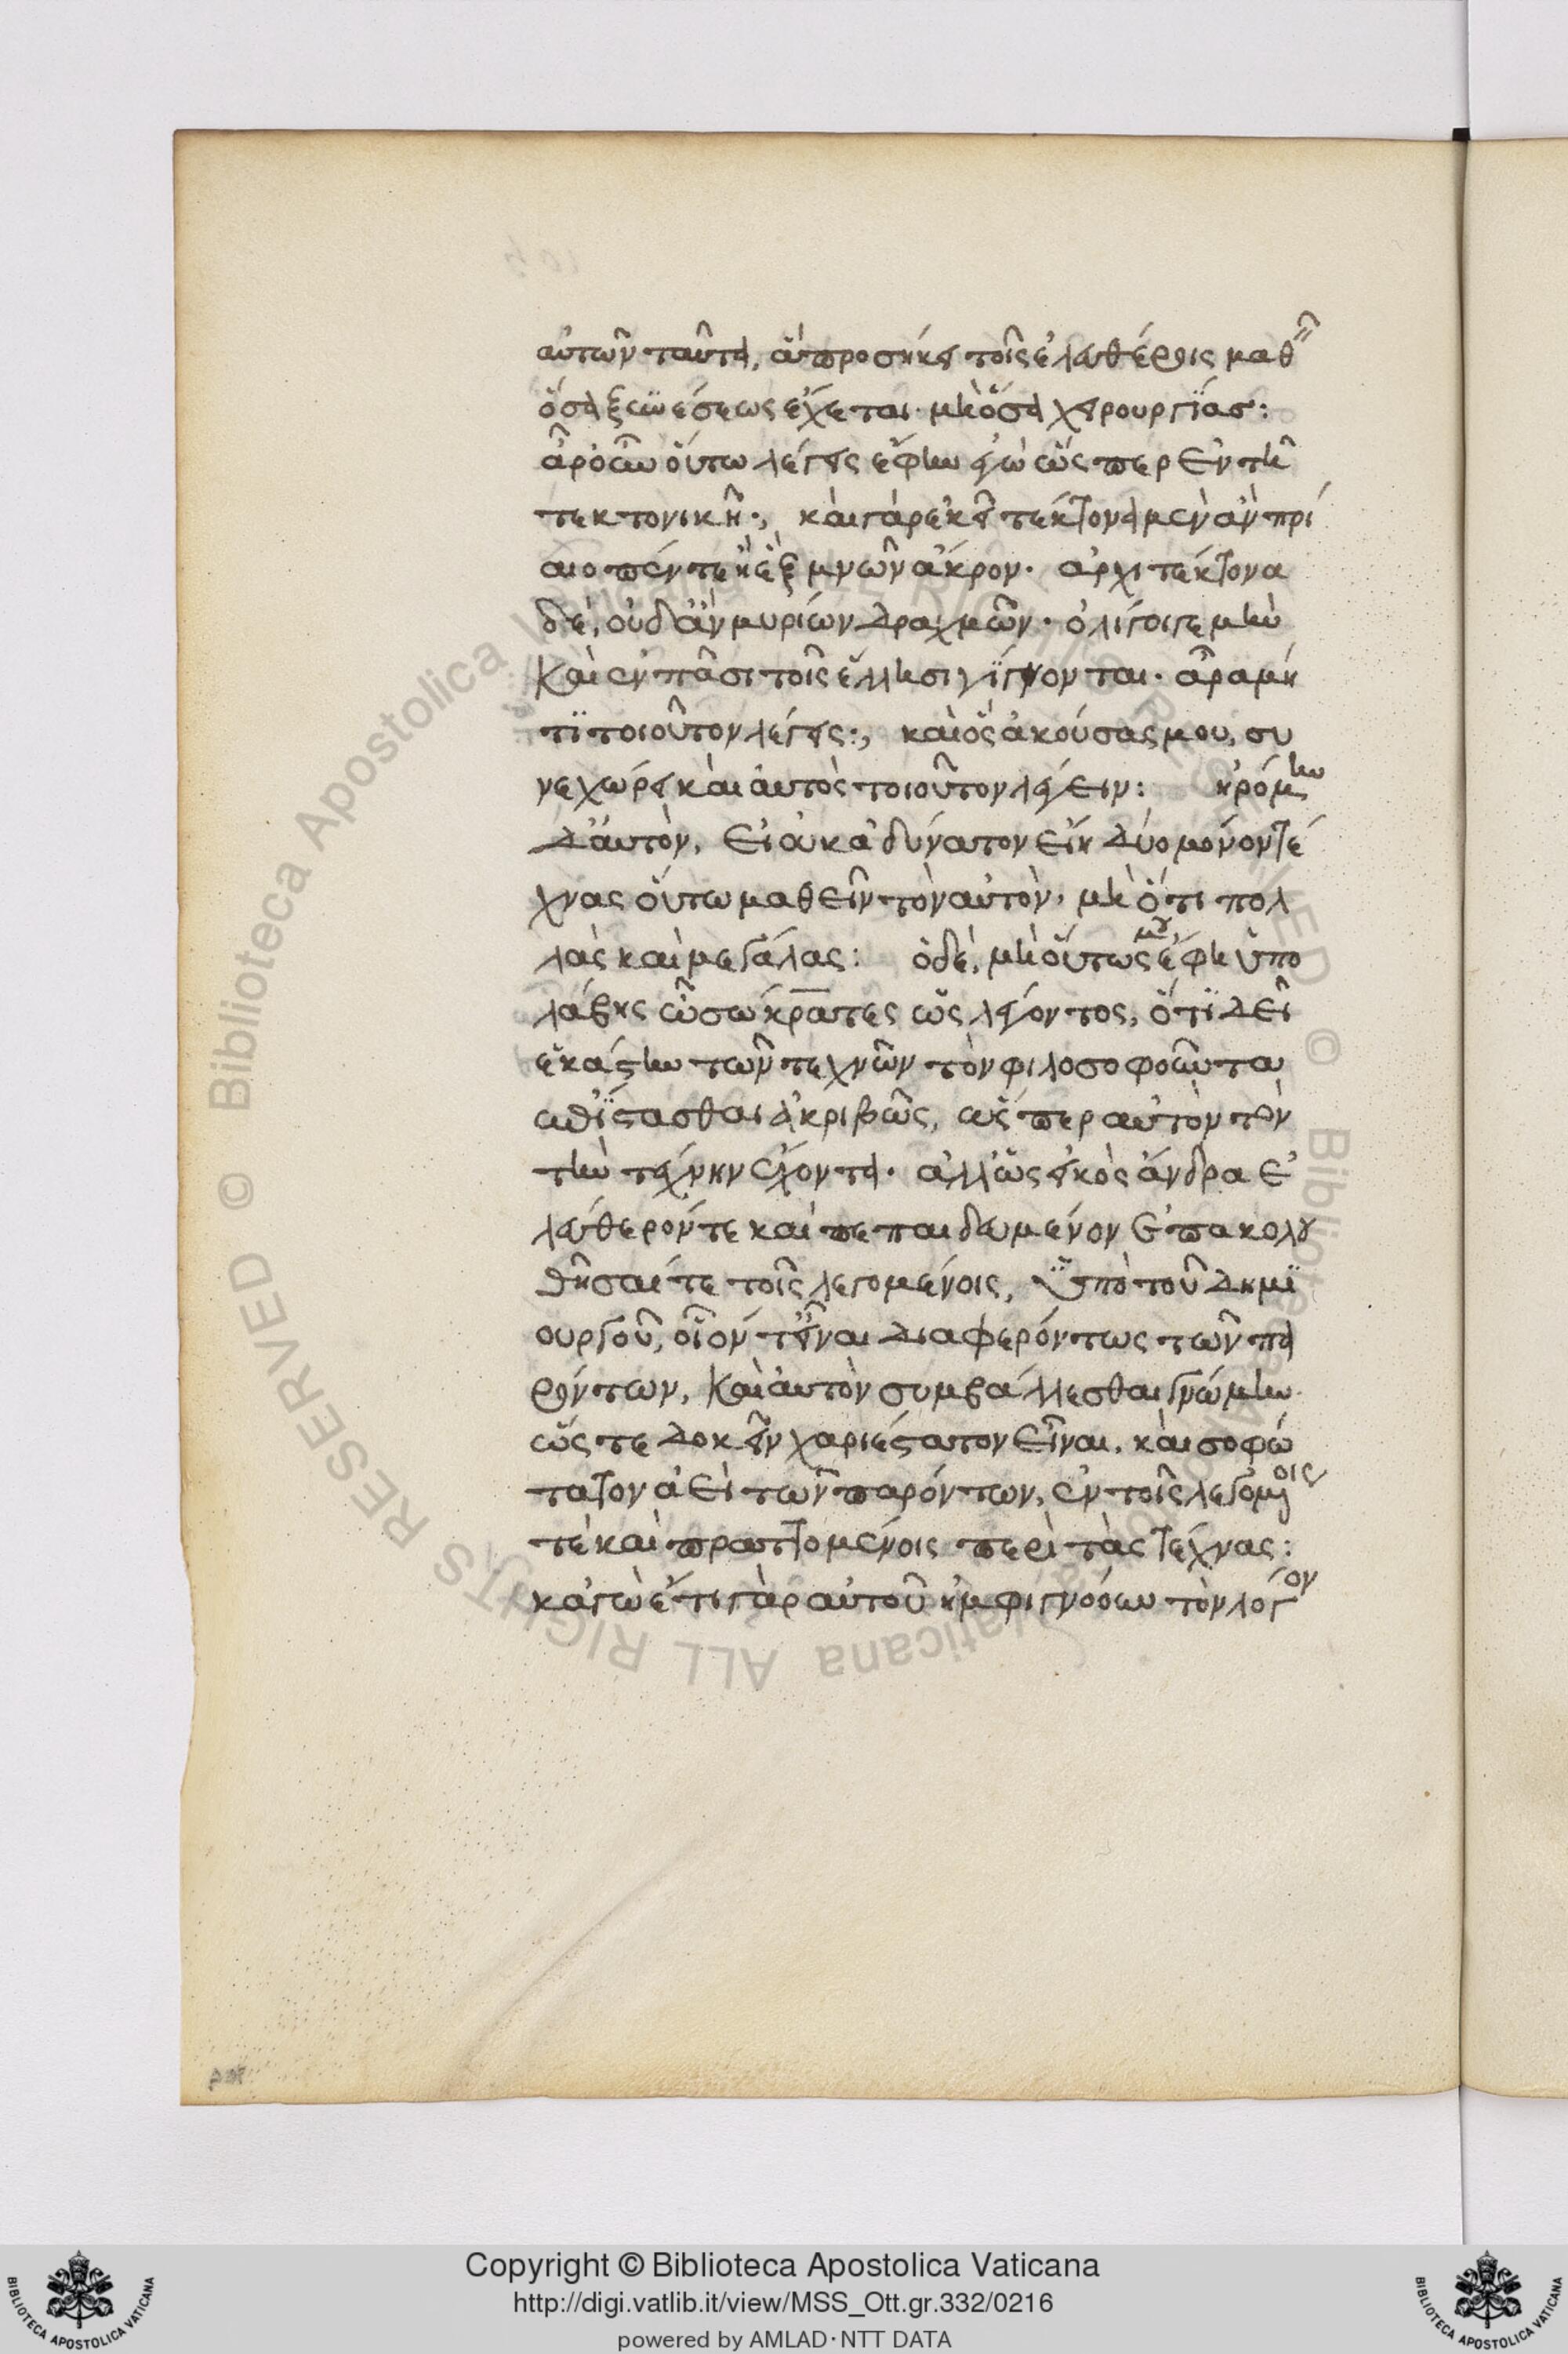 αὐτῶν ταῦτα, ἃ προσήκει τοῖς ἐλευθέροις μαθεῖν
ὅσα ξυνέσεως ἔχεται· μὴ ὅσα χειρουργίας:
ἆρ' οὖν οὕτω λέγεις ἔφην ἐγὼ ὥσπερ ἐν τῇ
τεκτονικῆ·, καὶ γὰρ ἐκεῖ τέκτονα μὲν ἂν πρί
αιο πέντε ἢ ἓξ μνῶν ἄκρον· ἀρχιτέκτονα
δὲ, οὐδ' ἂν μυρίων δραχμῶν· ὀλίγοι γε μὴν
καὶ ἐν πᾶσι τοῖς ἕλλησι γίγνονται· ἆρα μή
τι τοιοῦτον λέγεις·, καὶ ὃς ἀκούσας μου, συ
νεχώρει καὶ αὐτὸς τοιοῦτον λέγειν: ἠρόμην
δ' αὐτὸν, εἰ οὐκ ἀδύνατον εἴη δύο μόνον τέ
χνας οὕτω μαθεῖν τὸν αὐτὸν, μὴ ὅτι πολ
λὰς καὶ μεγάλας: ὁ δὲ, μὴ οὕτως μου, ἔφη ὑπο
λάβῃς ὦ σώκρατες ὡς λέγοντος, ὅτι δεῖ
ἑκάστην τῶν τεχνῶν τὸν φιλοσοφοῦντα
ἐπίστασθαι ἀκριβῶς, ὥσπερ αὐτὸν τὸν
τὴν τέχνην ἔχοντα· ἀλλ' ὡς εἰκὸς ἄνδρα ἐ
λεύθερόν τε καὶ πεπαιδευμένον ἐπακολου
θῆσαί τε τοῖς λεγομένοις, ὑπὸ τοῦ δημι
ουργοῦ, οἷόν τ' εἶναι διαφερόντως τῶν πα
ρόντων, καὶ αὐτὸν συμβάλλεσθαι γνώμην
ὥστε δοκεῖν χαριέστατον εἶναι, καὶ σοφώ
τατον ἀεὶ τῶν παρόντων, ἐν τοῖς λεγομένοις
τὲ καὶ πραττομένοις περὶ τὰς τέχνας:
κἀγὼ ἔτι γὰρ αὐτοῦ ἠμφιγνόουν τὸν λόγον
Copyright © Biblioteca Apostolica Vaticana
http://digi.vatlib.it/view/MSS_Ott.gr.332/0216
powered by AMLAD·NTT DATA